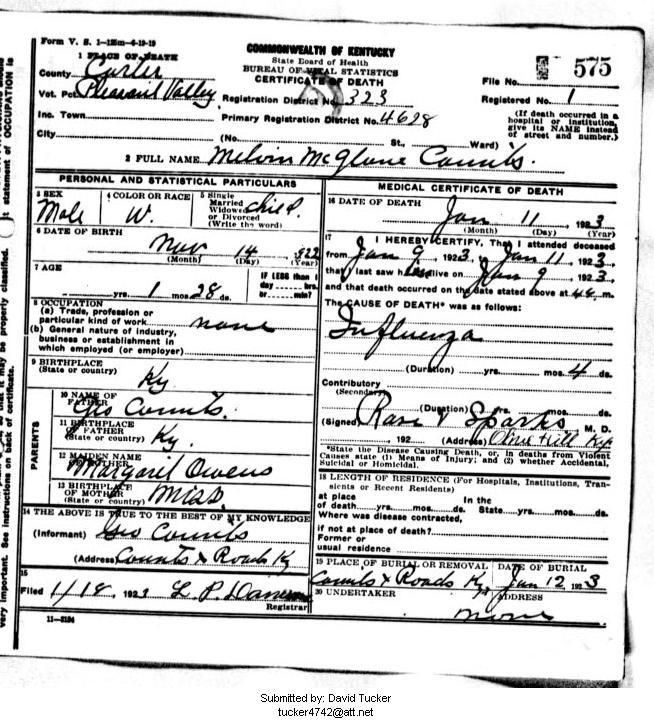 Form V. S. 1-125m-4-19-19
COMMONWEALTH OF KENTUCKY
State Board of Health
BUREAU OF VITAL STATISTICS
CERTIFICATE OF DEATH
1 PLACE OF DEATH
County Carter
Vot. Pct. Pleasant Valley
Inc. Town
City
Registration District No. 323
Primary Registration District No. 4628
(No. St., Ward)
File No. 575
Registered No. 1
(If death occurred in a
hospital or institution,
give its NAME instead
of street and number.)
2 FULL NAME Melvin McGlone Counts.
PERSONAL AND STATISTICAL PARTICULARS
3 SEX
Male
4 COLOR OR RACE
W.
5 Single
Married
Widowed
or Divorced
(Write the word)
6 DATE OF BIRTH
Nov 14 922
(Month) (Day) (Year)
7 AGE
yrs. 1 mos. 28 ds.
IF LESS than 1
day hrs.
or min?
8 OCCUPATION
(a) Trade, profession or
particular kind of work none
(b) General nature of industry,
business or establishment in
which employed (or employer)
9 BIRTHPLACE
(State or country)
Ky
PARENTS
10 NAME OF
FATHER
Geo Counts.
11 BIRTHPLACE
OF FATHER
(State or country) Ky.
12 MAIDEN NAME
OF MOTHER
Margaret Owens
13 BIRTHPLACE
OF MOTHER
(State or country) Miss
14 THE ABOVE IS TRUE TO THE BEST OF MY KNOWLEDGE
(Informant) Geo Counts
(Address) Counts X Roads Ky
15
Filed 1/18, 1923 L. P.
Registrar
11-3184
MEDICAL CERTIFICATE OF DEATH
16 DATE OF DEATH
Jan 11, 1923
(Month) (Day) (Year)
17 I HEREBY CERTIFY, That I attended deceased
from Jan 9, 1923, to Jan 11, 1923,
that I last saw h alive on Jan 9, 1923,
and that death occurred on the date stated above at m.
The CAUSE OF DEATH* was as follows:
Influenza
(Duration) yrs. mos. 4 ds.
Contributory
(Secondary)
(Duration) yrs. mos. ds.
(Signed) Rase V Sparks, M. D.
, 192 (Address) Olive Hill Ky
*State the Disease Causing Death, or, in deaths from Violent
Causes state (1) Means of Injury; and (2) whether Accidental,
Suicidal or Homicidal.
18 LENGTH OF RESIDENCE (For Hospitals, Institutions, Tran-
sients or Recent Residents)
At place In the
of death yrs. mos. ds. State yrs. mos. ds.
Where was disease contracted,
if not at place of death?
Former or
usual residence
19 PLACE OF BURIAL OR REMOVAL
Counts X Roads Ky
DATE OF BURIAL
Jan 12, 1923
20 UNDERTAKER
ADDRESS
none
very important. See instructions on back of certificate.
it may be properly classified.
statement of OCCUPATION is
Submitted by: David Tucker
tucker4742@att.net